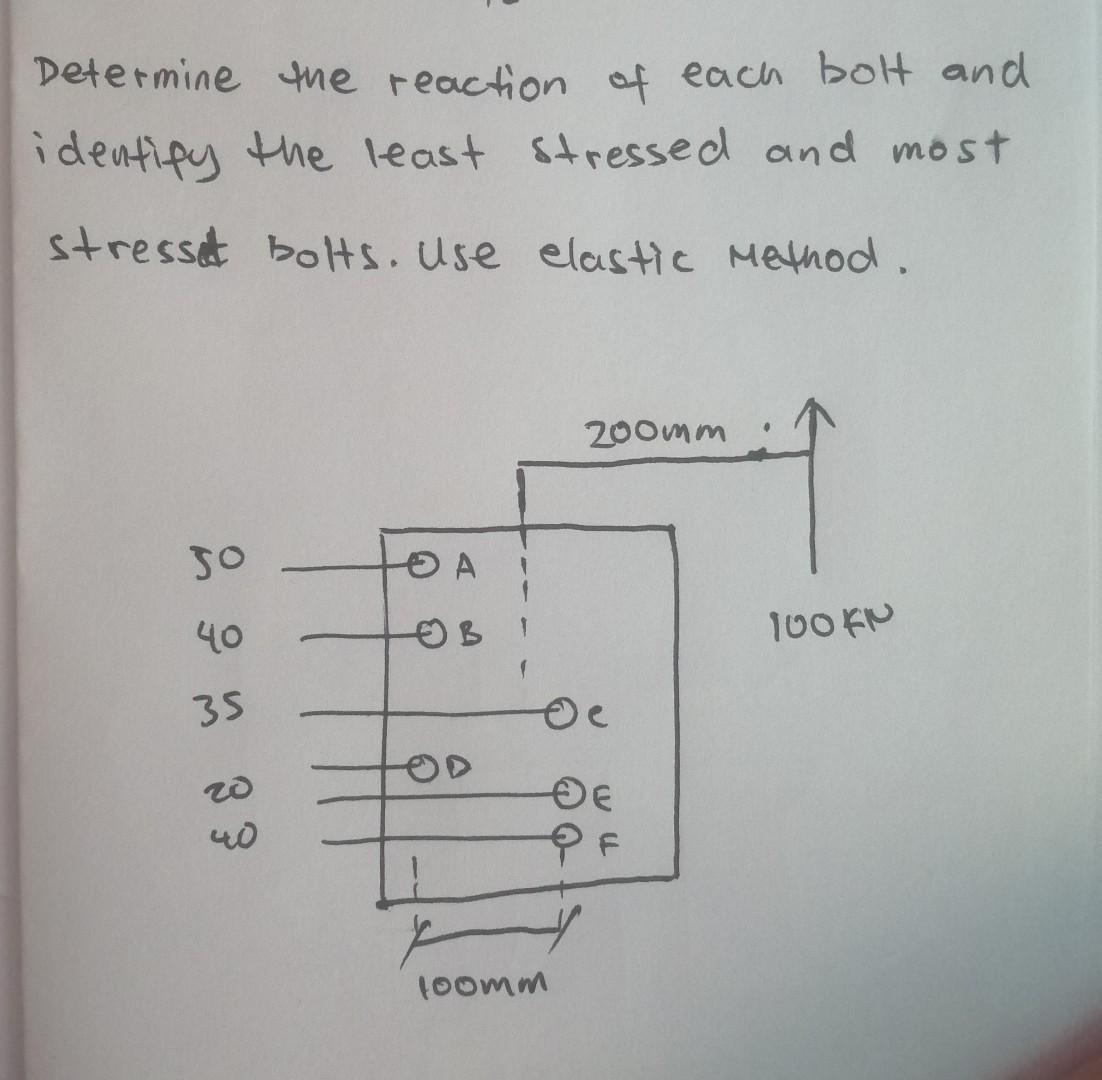 Determine the reaction of each bolt and
identify the least stressed and most
stressd bolts. Use elastic Method.
200mm
50
A
100 KN
40
B
35
C
D
20
E
40
F
100mm